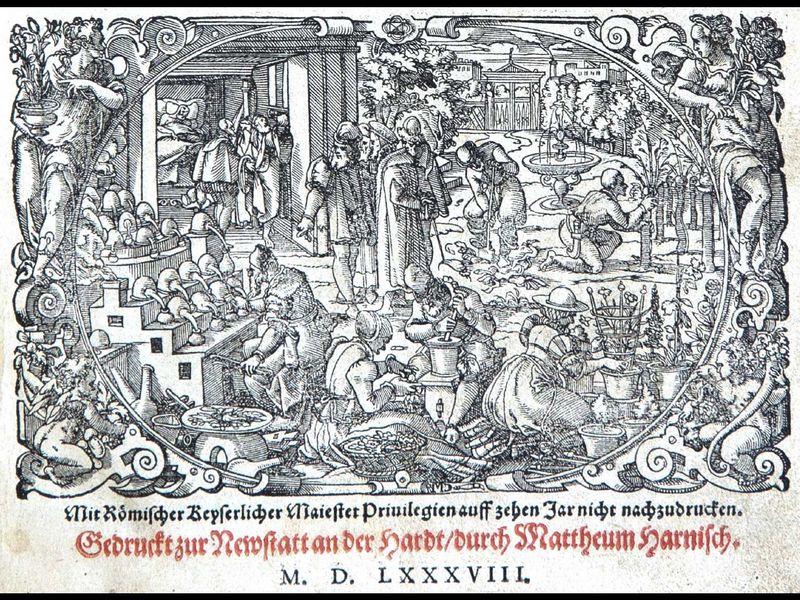 Mit Römischer Keyserlicher Maiestet Priuilegien auff zehen Jar nicht nachzudrucken.
Gedruckt zur Newstatt an der Hardt/durch Mattheum Harnisch.
M. D. LXXXVIII.